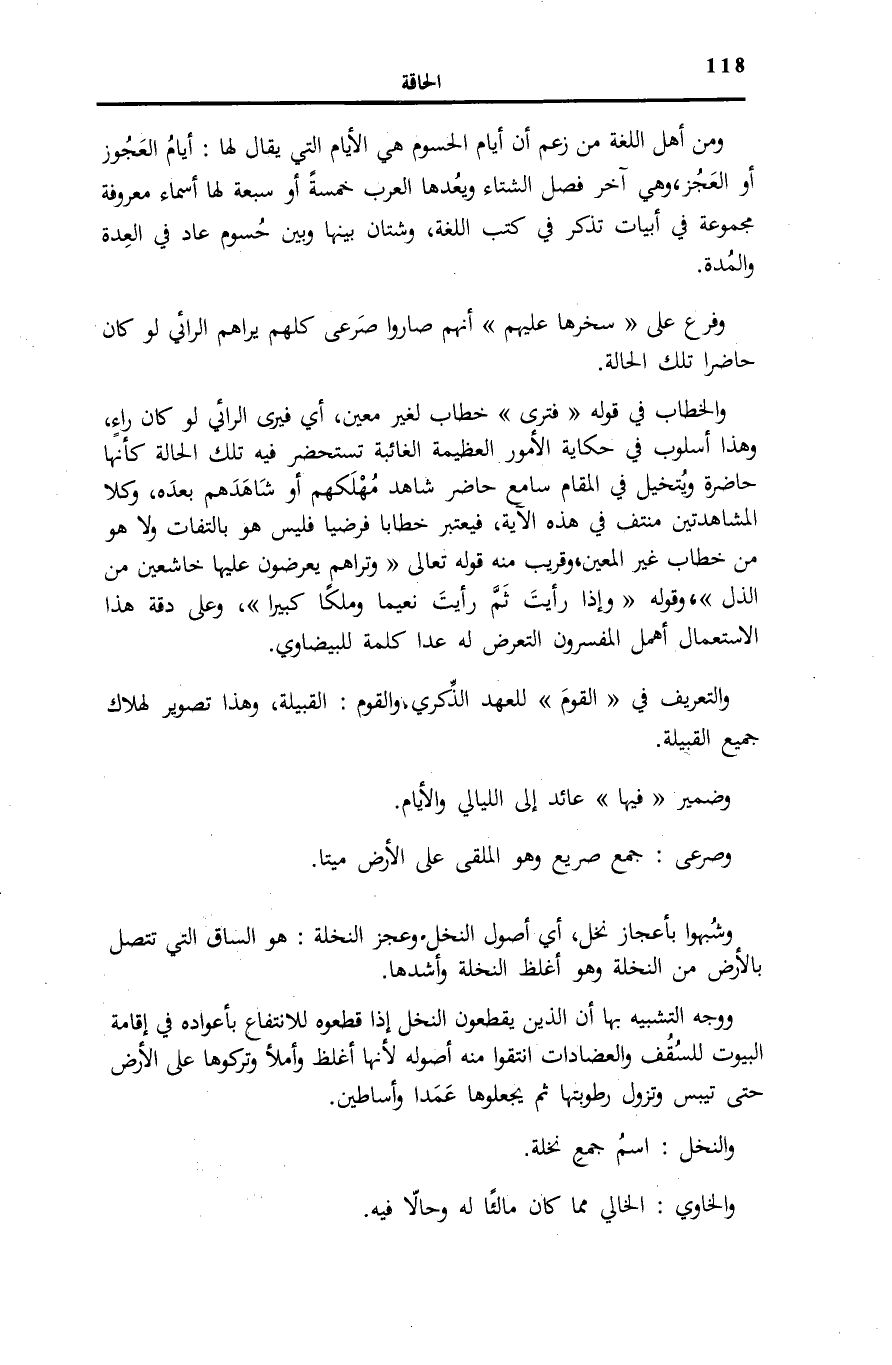 118
الحاقة
ومن أهل اللغة من زعم أن أيام الحسوم هي الأيام التي يقال لها : أيامُ العَجُوز
أو العَجُز،وهي آخر فصل الشتاء ويعُدها العرب خمسةً أو سبعة لها أسماء معروفة
مجموعة في أبيات تذكر في كتب اللغة، وشتان بينها وبين حُسوم عاد في العِدة
والمُدة.
وفرع على « سخرها عليهم » أنهم صاروا صَرعى كلهم يراهم الرائي لو كان
حاضرا تلك الحالة.
والخطاب في قوله « فترى » خطاب لغير معين، أي فيرى الرائي لو كان راءٍ،
وهذا أسلوب في حكاية الأمور العظيمة الغائبة تستحضر فيه تلك الحالة كأنها
حاضرة ويُتخيل في المقام سامع حاضر شاهد مُهْلَكهم أو شَاهَدَهم بعدَه، وكلا
المشاهدتين منتف في هذه الآية، فيعتبر خطابا فرضيا فليس هو بالتفات ولا هو
من خطاب غير المعين،وقريب منه قوله تعالى « وتراهم يعرضون عليها خاشعين من
الذل »،وقوله « وإذا رأيتَ ثَمَّ رأيتَ نعيما وملكًا كبيرا »، وعلى دقة هذا
الاستعمال أهمل المفسرون التعرض له عدا كلمة للبيضاوي.
والتعريف في « القومَ » للعهد الذِّكري،والقوم : القبيلة، وهذا تصوير لهلاك
جميع القبيلة.
وضمير « فيها » عائد إلى الليالي والأيام.
وصرعى : جمع صريع وهو الملقى على الأرض ميتا.
وشُبهوا بأعجاز نخل، أي أصول النخل.وعجز النخلة : هو الساق التي تتصل
بالأرض من النخلة وهو أغلظ النخلة وأشدها.
ووجه التشبيه بها أن الذين يقطعون النخل إذا قطعوه للانتفاع بأعواده في إقامة
البيوت للسُقُف والعضادات انتقوا منه أصوله لأنها أغلظ وأملأ وتركوها على الأرض
حتى تيبس وتزول رطوبتها ثم يجعلوها عَمَدا وأساطين.
والنخل : اسمُ جمعِ نخلة.
والخاوي : الخالي مما كان مالئًا له وحالًا فيه.